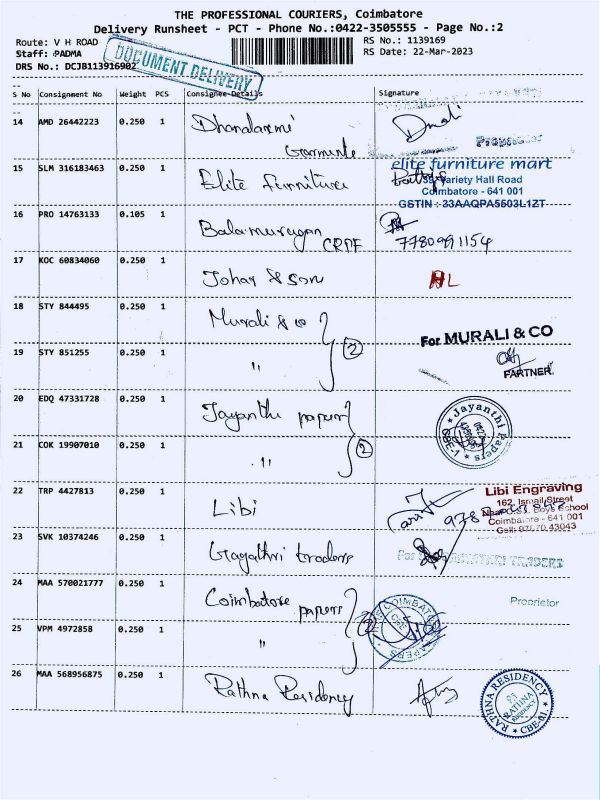 THE PROFESSIONAL COURIERS, Coimbatore
Delivery Runsheet - PCT - Phone No.:0422-3505555 - Page No.:2
Route: V H ROAD
RS No.: 1139169
Staff: PADMA
RS Date: 22-Mar-2023
DRS No.: DCJB113916902
DOCUMENT DELIVERY
S No Consignment No Weight PCS Consignee Details Signature
14 AMD 26442223 0.250 1 Dhanalaxmi
Garments
Proprietor
15 SLM 316183463 0.250 1 Elite furniture
elite furniture mart
Variety Hall Road
Coimbatore - 641 001
GSTIN : 33AAQPA5603L1ZT
16 PRO 14763133 0.105 1 Balamurugan
CRPF
7780991154
17 KOC 60834060 0.250 1 Johar & son
18 STY 844495 0.250 1 Murali & co
2
For MURALI & CO
PARTNER.
19 STY 851255 0.250 1 "
20 EDQ 47331728 0.250 1 Jayanthi papers
2
Jayanthi Papers
CBE-1
21 COK 19907010 0.250 1 "
22 TRP 4427813 0.250 1 Libi
Libi Engraving
162, Ismail Street
Near C.S.I. Boys School
Coimbatore - 641 001
23 SVK 10374246 0.250 1 Gayathri traders
TRADERS
Proprietor
24 MAA 570021777 0.250 1 Coimbatore papers
2
25 VPM 4972858 0.250 1 "
26 MAA 568956875 0.250 1 Rathna Residency
RATHNA RESIDENCY
RATHNA
RESIDENCY
CBE-01.